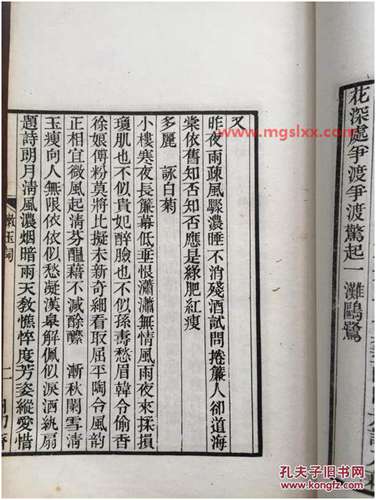 花深處爭渡爭渡驚起一灘鷗鷺
又
昨夜雨疏風驟濃睡不消殘酒試問捲簾人卻道海
棠依舊知否知否應是綠肥紅瘦
多麗 詠白菊
小樓寒夜長簾幕低垂恨瀟瀟無情風雨夜來揉損
瓊肌也不似貴妃醉臉也不似孫壽愁眉韓令偷香
徐娘傅粉莫將比擬未新奇細看取屈平陶令風韻
正相宜微風起清芬醞藉不減酴醾 漸秋闌雪清
玉瘦向人無限依依似愁凝漢皐解佩似淚洒紈扇
題詩明月清風濃烟暗雨天教憔悴度芳姿縱愛惜
漱玉詞
二
www.mgslxx.com
孔夫子旧书网